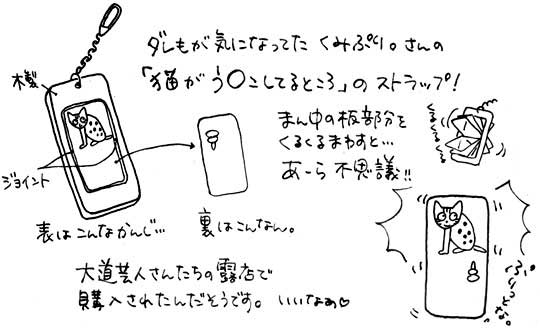 ダレもが気になってた くみぷり。さんの
「猫がう〇こしてるところ」の ストラップ!
木製
ジョイント
表はこんなかんじ…
裏はこんなん。
まん中の板部分を
くるくるまわすと…
あーら不思議!!
くるくるくる
ぷりっとな。
大道芸人さんたちの露店で
購入されたんだそうです。いいなぁ♡